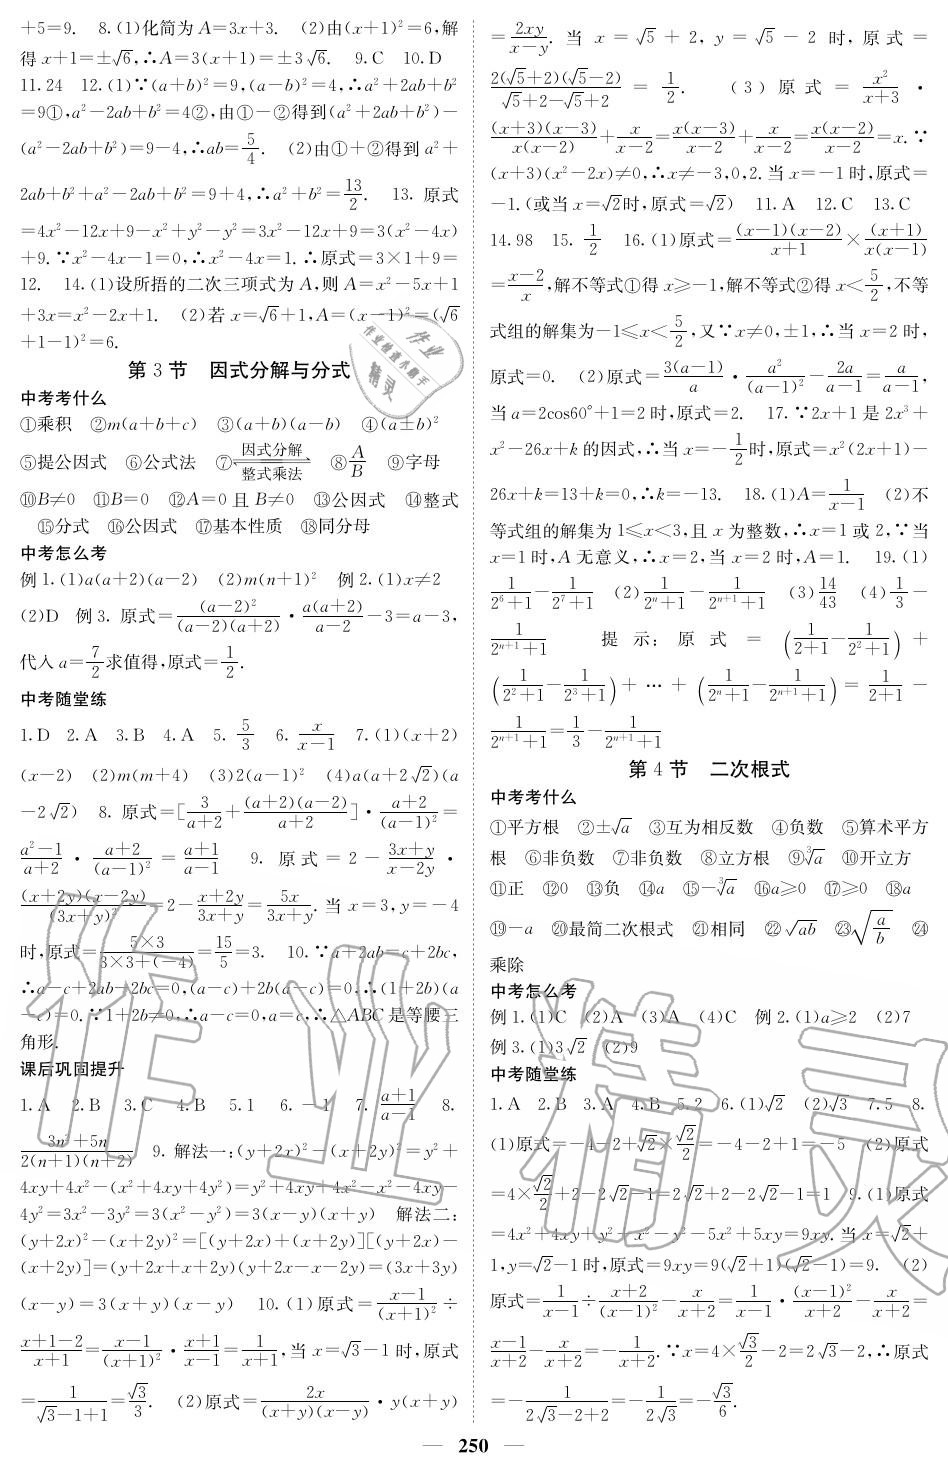 +5=9.　8.(1)化简为 A=3x+3.　(2)由(x+1)²=6,解
得 x+1=±√6,∴A=3(x+1)=±3√6.　9.C　10.D
11.24　12.(1)∵(a+b)²=9,(a-b)²=4,∴a²+2ab+b²
=9①,a²-2ab+b²=4②,由①-②得到(a²+2ab+b²)-
(a²-2ab+b²)=9-4,∴ab=5/4.　(2)由①+②得到 a²+
2ab+b²+a²-2ab+b²=9+4,∴a²+b²=13/2.　13. 原式
=4x²-12x+9-x²+y²-y²=3x²-12x+9=3(x²-4x)
+9.∵x²-4x-1=0,∴x²-4x=1.∴原式=3×1+9=
12.　14.(1)设所捂的二次三项式为 A,则 A=x²-5x+1
+3x=x²-2x+1.　(2)若 x=√6+1,A=(x-1)²=(√6
+1-1)²=6.
第 3 节　因式分解与分式
中考考什么
①乘积　②m(a+b+c)　③(a+b)(a-b)　④(a±b)²
⑤提公因式　⑥公式法　⑦因式分解⇌整式乘法　⑧A/B　⑨字母
⑩B≠0　⑪B=0　⑫A=0 且 B≠0　⑬公因式　⑭整式
⑮分式　⑯公因式　⑰基本性质　⑱同分母
中考怎么考
例 1.(1)a(a+2)(a-2)　(2)m(n+1)²　例 2.(1)x≠2
(2)D　例 3. 原式=(a-2)²/((a-2)(a+2))·a(a+2)/(a-2)-3=a-3,
代入 a=7/2求值得,原式=1/2.
中考随堂练
1.D　2.A　3.B　4.A　5. 5/3　6. x/(x-1)　7.(1)(x+2)
(x-2)　(2)m(m+4)　(3)2(a-1)²　(4)a(a+2√2)(a
-2√2)　8. 原式=[3/(a+2)+(a+2)(a-2)/(a+2)]·(a+2)/(a-1)²=
(a²-1)/(a+2)·(a+2)/(a-1)²=(a+1)/(a-1)　9. 原式=2-(3x+y)/(x-2y)·
(x+2y)(x-2y)/(3x+y)²=2-(x+2y)/(3x+y)=5x/(3x+y). 当 x=3,y=-4
时,原式=5×3/(3×3+(-4))=15/5=3.　10.∵a+2ab=c+2bc,
∴a-c+2ab-2bc=0,(a-c)+2b(a-c)=0.∴(1+2b)(a
-c)=0.∵1+2b≠0,∴a-c=0,a=c,∴△ABC 是等腰三
角形.
课后巩固提升
1.A　2.B　3.C　4.B　5.1　6.-1　7. (a+1)/(a-1)　8.
(3n²+5n)/(2(n+1)(n+2))　9. 解法一:(y+2x)²-(x+2y)²=y²+
4xy+4x²-(x²+4xy+4y²)=y²+4xy+4x²-x²-4xy-
4y²=3x²-3y²=3(x²-y²)=3(x-y)(x+y)　解法二:
(y+2x)²-(x+2y)²=[(y+2x)+(x+2y)][(y+2x)-
(x+2y)]=(y+2x+x+2y)(y+2x-x-2y)=(3x+3y)
(x-y)=3(x+y)(x-y)　10.(1)原式=(x-1)/(x+1)²÷
(x+1-2)/(x+1)=(x-1)/(x+1)²·(x+1)/(x-1)=1/(x+1),当 x=√3-1 时,原式
=1/(√3-1+1)=√3/3.　(2)原式=2x/((x+y)(x-y))·y(x+y)
=2xy/(x-y). 当 x=√5+2,y=√5-2 时,原式=
2(√5+2)(√5-2)/(√5+2-√5+2)=1/2.　(3)原式=x²/(x+3)·
(x+3)(x-3)/(x(x-2))+x/(x-2)=x(x-3)/(x-2)+x/(x-2)=x(x-2)/(x-2)=x.∵
(x+3)(x²-2x)≠0,∴x≠-3,0,2.当 x=-1 时,原式=
-1.(或当 x=√2时,原式=√2)　11.A　12.C　13.C
14.98　15. 1/2　16.(1)原式=(x-1)(x-2)/(x+1)×(x+1)/(x(x-1))
=(x-2)/x,解不等式①得 x≥-1,解不等式②得 x<5/2,不等
式组的解集为-1≤x<5/2,又∵x≠0,±1,∴当 x=2 时,
原式=0.　(2)原式=3(a-1)/a·a²/(a-1)²-2a/(a-1)=a/(a-1),
当 a=2cos60°+1=2 时,原式=2.　17.∵2x+1 是 2x³+
x²-26x+k 的因式,∴当 x=-1/2时,原式=x²(2x+1)-
26x+k=13+k=0,∴k=-13.　18.(1)A=1/(x-1)　(2)不
等式组的解集为 1≤x<3,且 x 为整数,∴x=1 或 2,∵当
x=1 时,A 无意义,∴x=2,当 x=2 时,A=1.　19.(1)
1/(2⁶+1)-1/(2⁷+1)　(2)1/(2ⁿ+1)-1/(2ⁿ⁺¹+1)　(3)14/43　(4)1/3-
1/(2ⁿ⁺¹+1)　提示:原式=(1/(2+1)-1/(2²+1))+
(1/(2²+1)-1/(2³+1))+…+(1/(2ⁿ+1)-1/(2ⁿ⁺¹+1))=1/(2+1)-
1/(2ⁿ⁺¹+1)=1/3-1/(2ⁿ⁺¹+1)
第 4 节　二次根式
中考考什么
①平方根　②±√a　③互为相反数　④负数　⑤算术平方
根　⑥非负数　⑦非负数　⑧立方根　⑨∛a　⑩开立方
⑪正　⑫0　⑬负　⑭a　⑮-∛a　⑯a≥0　⑰≥0　⑱a
⑲-a　⑳最简二次根式　㉑相同　㉒√ab　㉓√(a/b)　㉔
乘除
中考怎么考
例 1.(1)C　(2)A　(3)A　(4)C　例 2.(1)a≥2　(2)7
例 3.(1)3√2　(2)9
中考随堂练
1.A　2.B　3.A　4.B　5.2　6.(1)√2　(2)√3　7.5　8.
(1)原式=-4-2+√2×√2/2=-4-2+1=-5　(2)原式
=4×√2/2+2-2√2-1=2√2+2-2√2-1=1　9.(1)原式
=4x²+4xy+y²+x²-y²-5x²+5xy=9xy.当 x=√2+
1,y=√2-1 时,原式=9xy=9(√2+1)(√2-1)=9.　(2)
原式=1/(x-1)÷(x+2)/(x-1)²-x/(x+2)=1/(x-1)·(x-1)²/(x+2)-x/(x+2)=
(x-1)/(x+2)-x/(x+2)=-1/(x+2).∵x=4×√3/2-2=2√3-2,∴原式
=-1/(2√3-2+2)=-1/(2√3)=-√3/6.
— 250 —